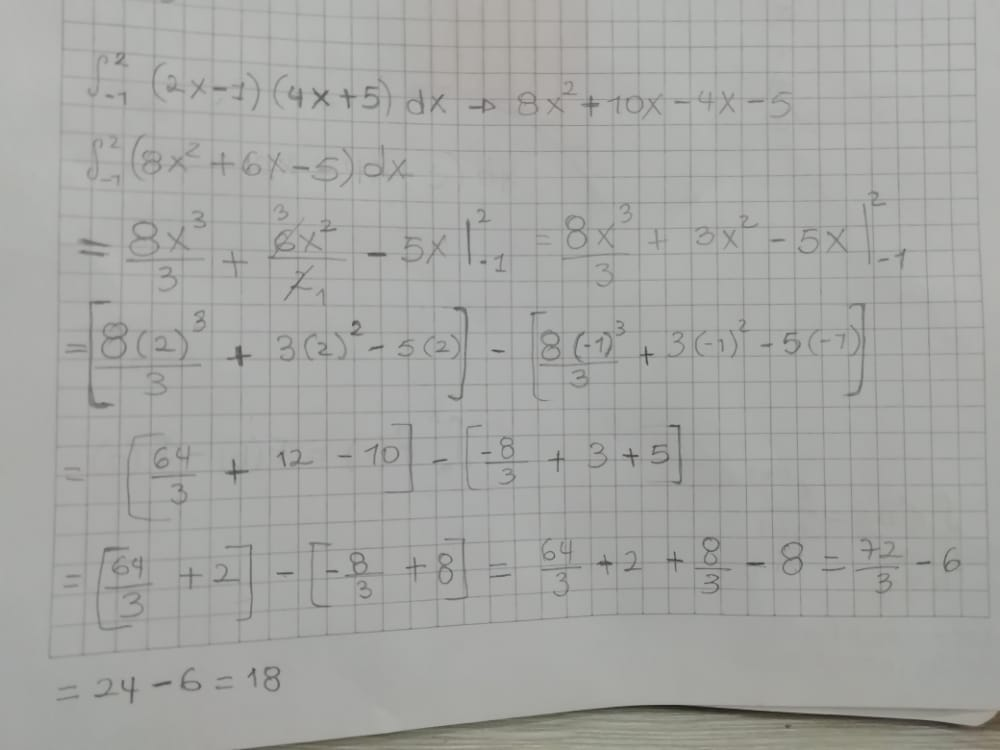 ∫₋₁² (2x-1)(4x+5) dx → 8x²+10x-4x-5
∫₋₁² (8x²+6x-5)dx
= 8x³/3 + 6x²/2 - 5x |₋₁² = 8x³/3 + 3x² - 5x |₋₁²
= [8(2)³/3 + 3(2)² - 5(2)] - [8(-1)³/3 + 3(-1)² - 5(-1)]
= [64/3 + 12 - 10] - [-8/3 + 3 + 5]
= [64/3 + 2] - [-8/3 + 8] = 64/3 + 2 + 8/3 - 8 = 72/3 - 6
= 24 - 6 = 18